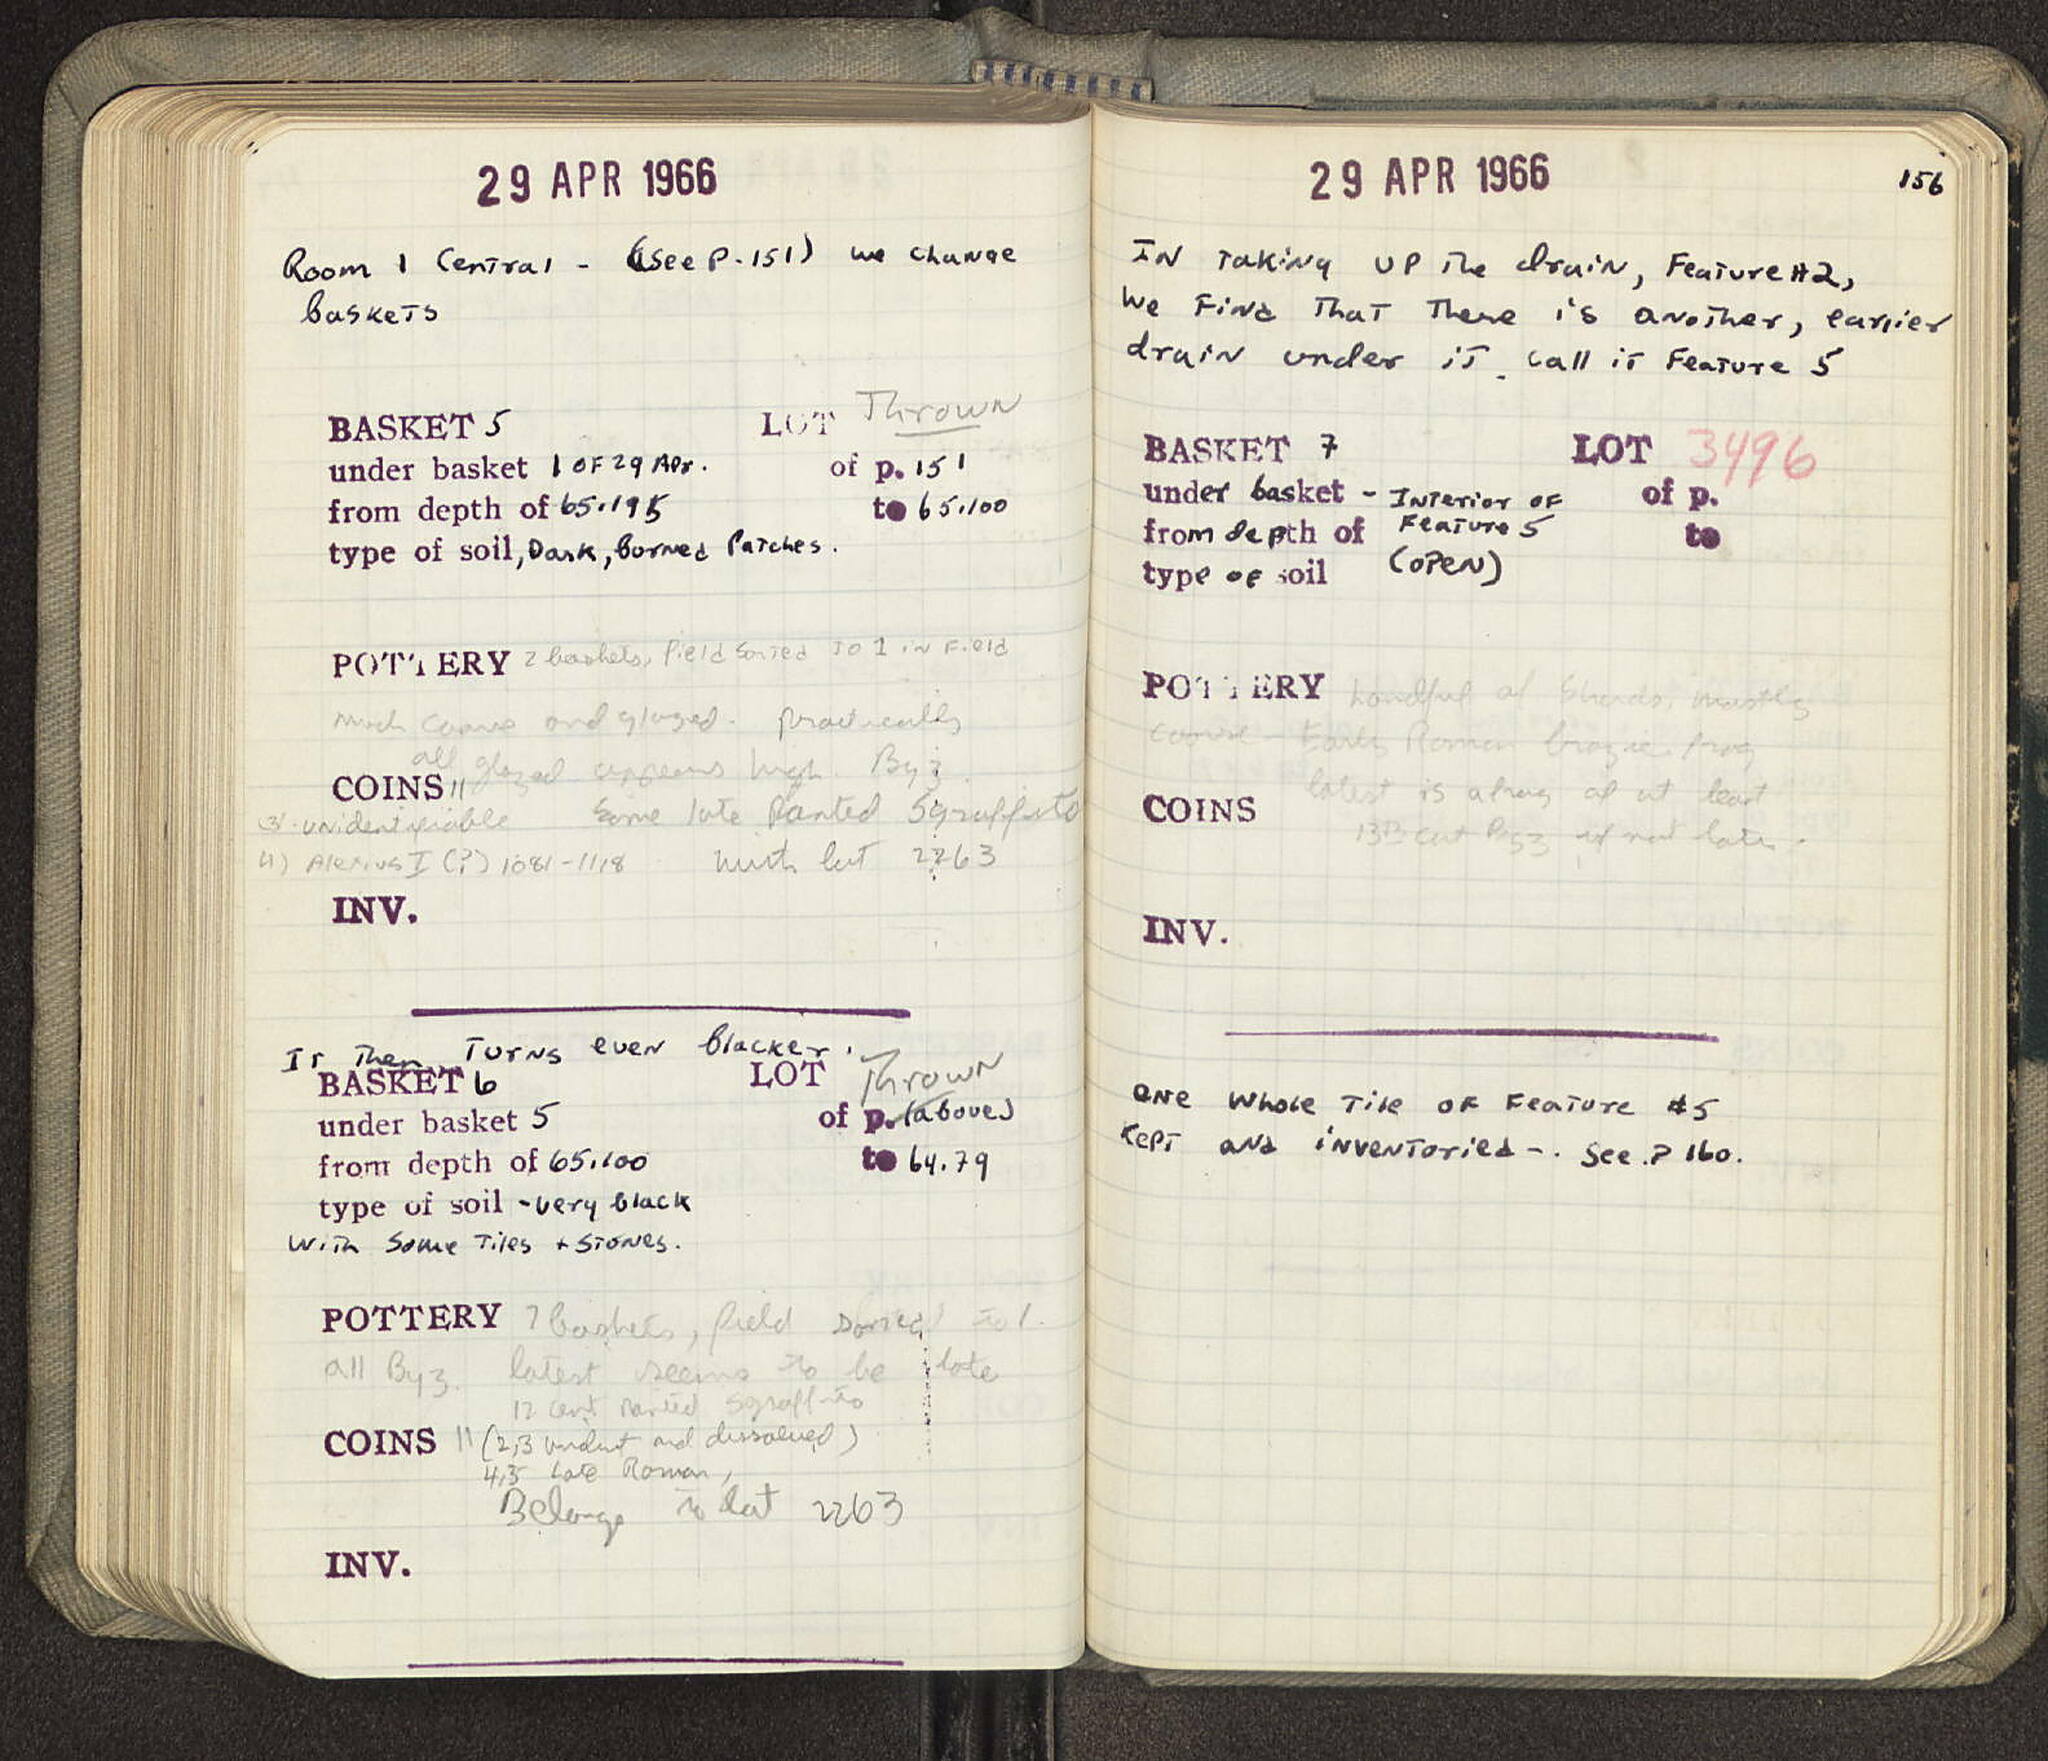 29 APR 1966
Room 1 Central - (See P. 151) we change
baskets
BASKET 5 LOT Thrown
under basket 1 OF 29 Apr. of p. 151
from depth of 65.195 to 65.100
type of soil, Dark, burned Patches.
POTTERY 2 baskets, field sorted to 1 in field
much coarse and glazed. practically
all glazed appears high Byz.
COINS 11
3) unidentifiable Some late Painted Sgraffito
4) Alexius I (?) 1081-1118 with lot 2263
INV.
It Then Turns even blacker.
BASKET 6 LOT Thrown
under basket 5 of p. (above)
from depth of 65.100 to 64.79
type of soil - very black
with some Tiles + Stones.
POTTERY 7 baskets, field sorted to 1.
all Byz. latest seems to be late
12 cent painted sgraffito
COINS 11 (2,3 unident and dissolved)
4,5 Late Roman,
Belongs to lot 2263
INV.
29 APR 1966
156
In taking up the drain, Feature #2,
we find that there is another, earlier
drain under it. call it Feature 5
BASKET 7 LOT 3496
under basket - Interior of of p.
from depth of Feature 5 to
type of soil (open)
POTTERY handful of sherds, mostly
coarse - Early Roman brazier frag
latest is a frag of at least
COINS
13th cent Byz if not later.
INV.
one whole Tile of Feature #5
kept and inventoried -. See P 160.